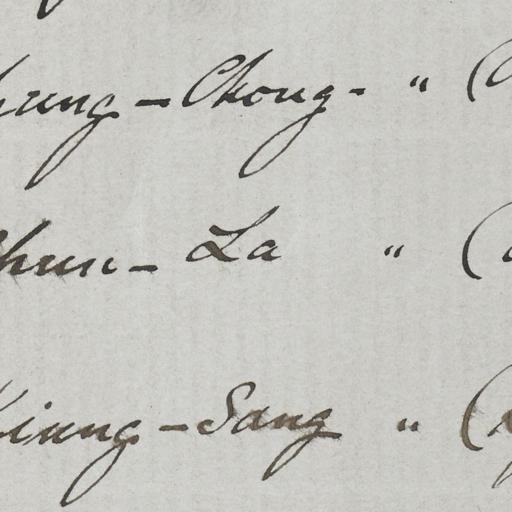 hung-Chong- " (
Chun- La " (
Kiung-Sang " (